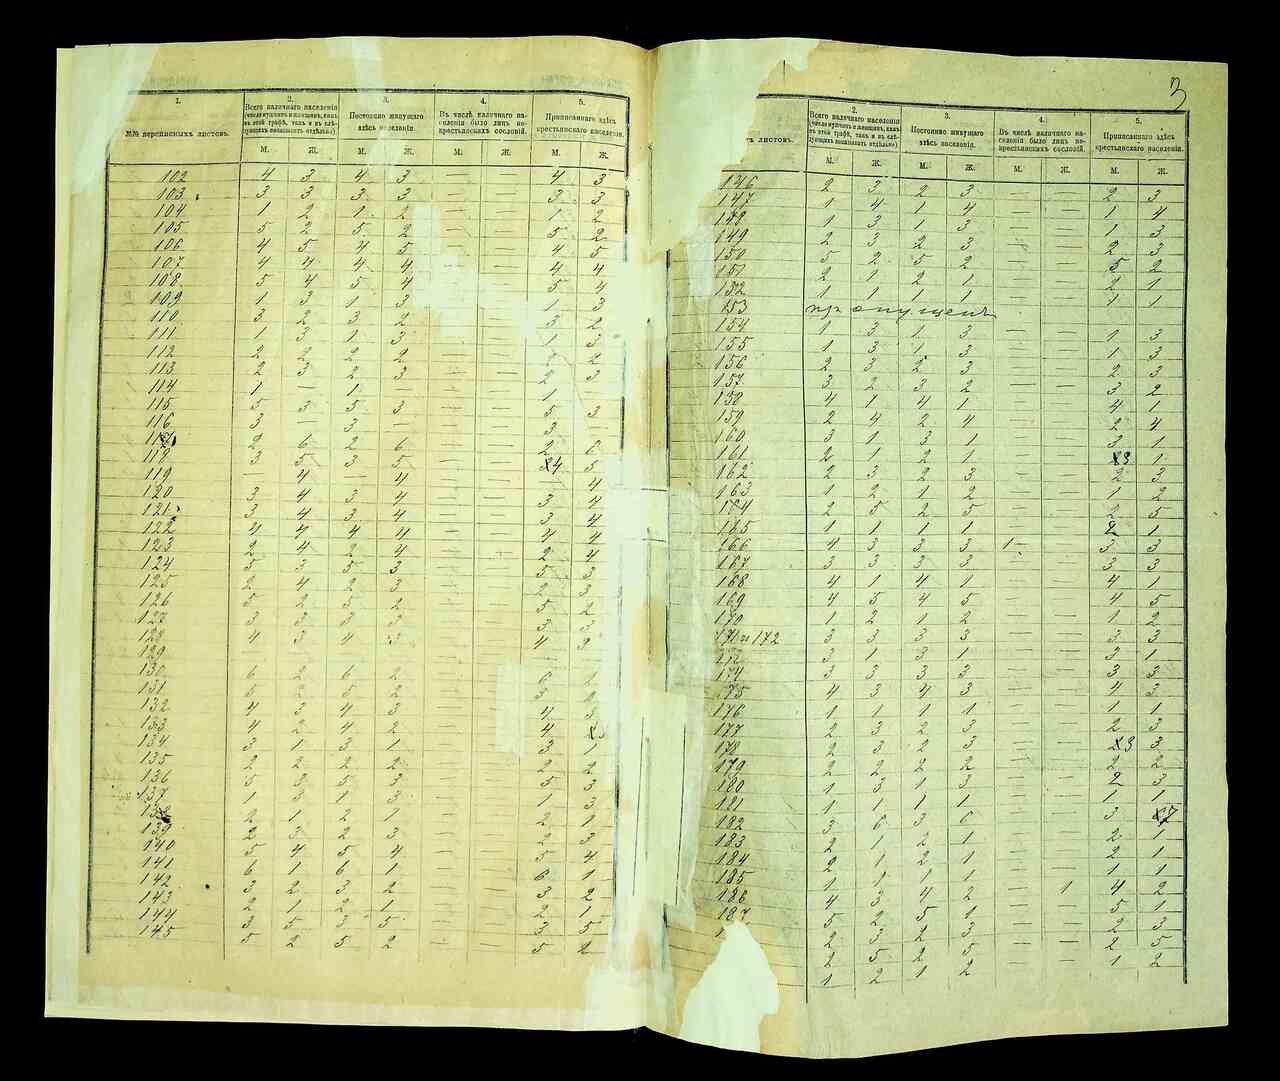 1. 2. 3. 4. 5.
№№ переписныхъ листовъ. Всего наличнаго населенія (число мужчин и женщинъ, какъ въ этой графѣ, такъ и въ слѣдующихъ показывать отдѣльно) Постоянно живущаго здѣсь населенія. Въ числѣ наличнаго населенія было лицъ некрестьянскихъ сословій. Приписаннаго здѣсь крестьянскаго населенія.
М. Ж. М. Ж. М. Ж. М. Ж.
102 4 3 4 3 — — 4 3
103 3 3 3 3 — — 3 3
104 1 2 1 2 — — 1 2
105 5 2 5 2 — — 5 2
106 4 5 4 5 — — 4 5
107 4 4 4 4 — — 4 4
108 5 4 5 4 — — 5 4
109 1 3 1 3 — — 1 3
110 3 2 3 2 — — 3 2
111 1 3 1 3 — — 1 3
112 2 2 2 2 — — 2 2
113 2 3 2 3 — — 2 3
114 1 — 1 — — 1
115 5 3 5 3 — — 5 3
116 3 — 3 — — 3 —
117 2 6 2 6 — — 2 6
118 3 5 3 5 — — 4 5
119 — 4 — 4 — — 4
120 3 4 3 4 — — 3 4
121 3 4 3 4 — — 3 4
122 4 4 4 4 — — 4 4
123 2 4 2 4 — — 2 4
124 5 3 5 3 — — 5 3
125 2 4 2 3 — — 2 3
126 5 2 5 2 — — 5 2
127 3 3 3 3 — — 3 3
128 4 3 4 3 — — 4 3
129
130 6 2 6 2 — — 6 2
131 5 2 5 2 — —
132 4 3 4 3 — — 4 3
133 4 2 4 2 — — 4
134 3 1 3 1 — — 3 1
135 2 2 2 2 — — 2 2
136 5 3 5 3 — — 5 3
137 1 3 1 3 — — 1 3
138 2 1 2 1 — — 2 1
139 2 3 2 3 — — 2 3
140 5 4 5 4 — — 5 4
141 6 1 6 1 — — 6 1
142 3 2 3 2 — — 3 2
143 2 1 2 1 — — 2 1
144 3 5 3 5 — — 3 5
145 5 2 5 2 — — 5 2
3
2. 3. 4. 5.
листовъ. Всего наличнаго населенія (число мужчин и женщинъ, какъ въ этой графѣ, такъ и въ слѣдующихъ показывать отдѣльно) Постоянно живущаго здѣсь населенія. Въ числѣ наличнаго населенія было лицъ некрестьянскихъ сословій. Приписаннаго здѣсь крестьянскаго населенія.
М. Ж. М. Ж. М. Ж. М. Ж.
146 2 3 2 3 — — 2 3
147 1 4 1 4 — — 1 4
148 1 3 1 3 — — 1 3
149 2 3 2 3 — — 2 3
150 5 2 5 2 — — 5 2
151 2 1 2 1 — — 2 1
152 1 1 1 1 — — 1 1
153 пропущенъ
154 1 3 1 3 — — 1 3
155 1 3 1 3 — — 1 3
156 2 3 2 3 — — 2 3
157 3 2 3 2 — — 3 2
158 4 1 4 1 — — 4 1
159 2 4 2 4 — — 2 4
160 3 1 3 1 — — 3 1
161 2 1 2 1 — — 3 1
162 2 3 2 3 — — 2 3
163 1 2 1 2 — — 1 2
164 2 5 2 5 — — 2 5
165 1 1 1 1 — — 2 1
166 4 3 3 3 1 — 3 3
167 3 3 3 3 — — 3 3
168 4 1 4 1 — — 4 1
169 4 5 4 5 — — 4 5
170 1 2 1 2 — — 1 2
171 и 172 3 3 3 3 — — 3 3
3 1 3 1 — — 3 1
174 3 3 3 3 — — 3 3
175 4 3 4 3 — — 4 3
176 1 1 1 1 — — 1 1
177 2 3 2 3 — — 2 3
178 2 3 2 3 — — 3 3
179 2 2 2 2 — — 2 2
180 1 3 1 3 — — 2 3
181 1 1 1 1 — — 1 1
182 3 6 3 6 — — 3 7
183 2 1 2 1 — — 2 1
184 2 1 2 1 — — 2 1
185 1 1 1 1 — — 1 1
186 4 3 4 2 — 1 4 2
187 5 2 5 1 — — 5 1
2 3 2 3 — — 2 3
2 5 2 5 — — 2 5
1 2 1 2 — — 1 2